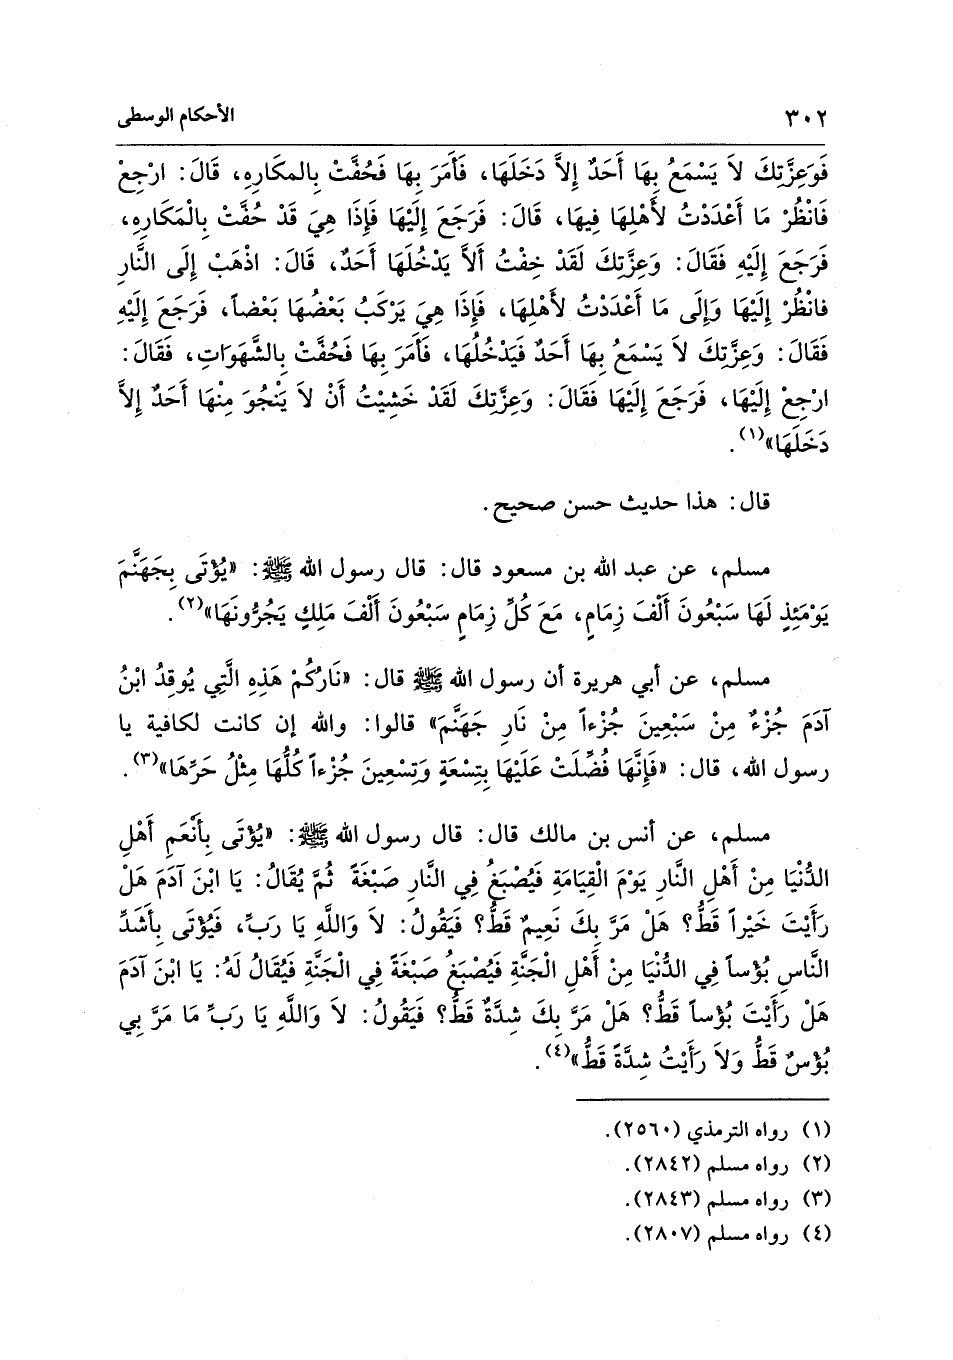 ٣٠٢ الأحكام الوسطى
فَوَعِزَّتِكَ لاَ يَسْمَعُ بِهَا أَحَدٌ إِلاَّ دَخَلَهَا، فَأَمَرَ بِهَا فَحُفَّتْ بِالمكَارِهِ، قَالَ: ارْجِعْ
فَانْظُرْ مَا أَعْدَدْتُ لأَهْلِهَا فِيهَا، قَالَ: فَرَجَعَ إِلَيْهَا فَإِذَا هِيَ قَدْ حُفَّتْ بِالْمَكَارِهِ،
فَرَجَعَ إِلَيْهِ فَقَالَ: وَعِزَّتِكَ لَقَدْ خِفْتُ أَلاَّ يَدْخُلَهَا أَحَدٌ، قَالَ: اذْهَبْ إِلَى النَّارِ
فانْظُرْ إِلَيْهَا وَإِلَى مَا أَعْدَدْتُ لأَهْلِهَا، فَإِذَا هِيَ يَرْكَبُ بَعْضُهَا بَعْضاً، فَرَجَعَ إِلَيْهِ
فَقَالَ: وَعِزَّتِكَ لاَ يَسْمَعُ بِهَا أَحَدٌ فَيَدْخُلُهَا، فَأَمَرَ بِهَا فَحُفَّتْ بِالشَّهَوَاتِ، فَقَالَ:
ارْجِعْ إِلَيْهَا، فَرَجَعَ إِلَيْهَا فَقَالَ: وَعِزَّتِكَ لَقَدْ خَشِيْتُ أَنْ لاَ يَنْجُوَ مِنْهَا أَحَدٌ إِلاَّ
دَخَلَهَا»(١).
قال: هذا حديث حسن صحيح.
مسلم، عن عبد الله بن مسعود قال: قال رسول الله ﷺ: «يُؤْتَى بِجَهَنَّمَ
يَوْمَئِذٍ لَهَا سَبْعُونَ أَلْفَ زِمَامٍ، مَعَ كُلِّ زِمَامٍ سَبْعُونَ أَلْفَ مَلِكٍ يَجُرُّونَهَا»(٢).
مسلم، عن أبي هريرة أن رسول الله ﷺ قال: «نَارُكُمْ هَذِهِ الَّتِي يُوقِدُ ابْنُ
آدَمَ جُزْءٌ مِنْ سَبْعِينَ جُزْءاً مِنْ نَارِ جَهَنَّمَ» قالوا: والله إن كانت لكافية يا
رسول الله، قال: «فَإِنَّهَا فُضِّلَتْ عَلَيْهَا بِتِسْعَةٍ وَتِسْعِينَ جُزْءاً كُلُّهَا مِثْلُ حَرِّهَا»(٣).
مسلم، عن أنس بن مالك قال: قال رسول الله ﷺ: «يُؤْتَى بِأَنْعَمِ أَهْلِ
الدُّنْيَا مِنْ أَهْلِ النَّارِ يَوْمَ الْقِيَامَةِ فَيُصْبَغُ فِي النَّارِ صَبْغَةً ثُمَّ يُقَالُ: يَا ابْنَ آدَمَ هَلْ
رَأَيْتَ خَيْراً قَطُّ؟ هَلْ مَرَّ بِكَ نَعِيمٌ قَطُّ؟ فَيَقُولُ: لاَ وَاللَّهِ يَا رَبِّ، فَيُؤْتَى بِأَشَدِّ
النَّاسِ بُؤْساً فِي الدُّنْيَا مِنْ أَهْلِ الْجَنَّةِ فَيُصْبَغُ صَبْغَةً فِي الْجَنَّةِ فَيُقَالُ لَهُ: يَا ابْنَ آدَمَ
هَلْ رَأَيْتَ بُؤْساً قَطُّ؟ هَلْ مَرَّ بِكَ شِدَّةٌ قَطُّ؟ فَيَقُولُ: لاَ وَاللَّهِ يَا رَبِّ مَا مَرَّ بِي
بُؤْسٌ قَطُّ وَلاَ رَأَيْتُ شِدَّةً قَطُّ»(٤).
(١) رواه الترمذي (٢٥٦٠).
(٢) رواه مسلم (٢٨٤٢).
(٣) رواه مسلم (٢٨٤٣).
(٤) رواه مسلم (٢٨٠٧).